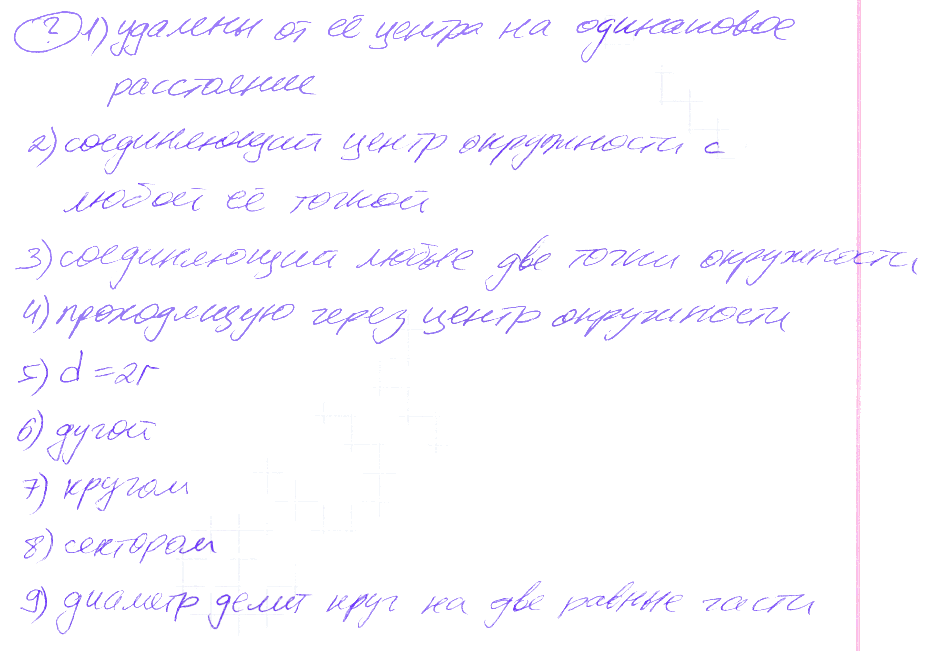 ? 1) удалены от её центра на одинаковое
расстояние
2) соединяющий центр окружности с
любой её точкой
3) соединяющий любые две точки окружности
4) проходящую через центр окружности
5) d = 2r
6) дугой
7) кругом
8) сектором
9) диаметр делит круг на две равные части